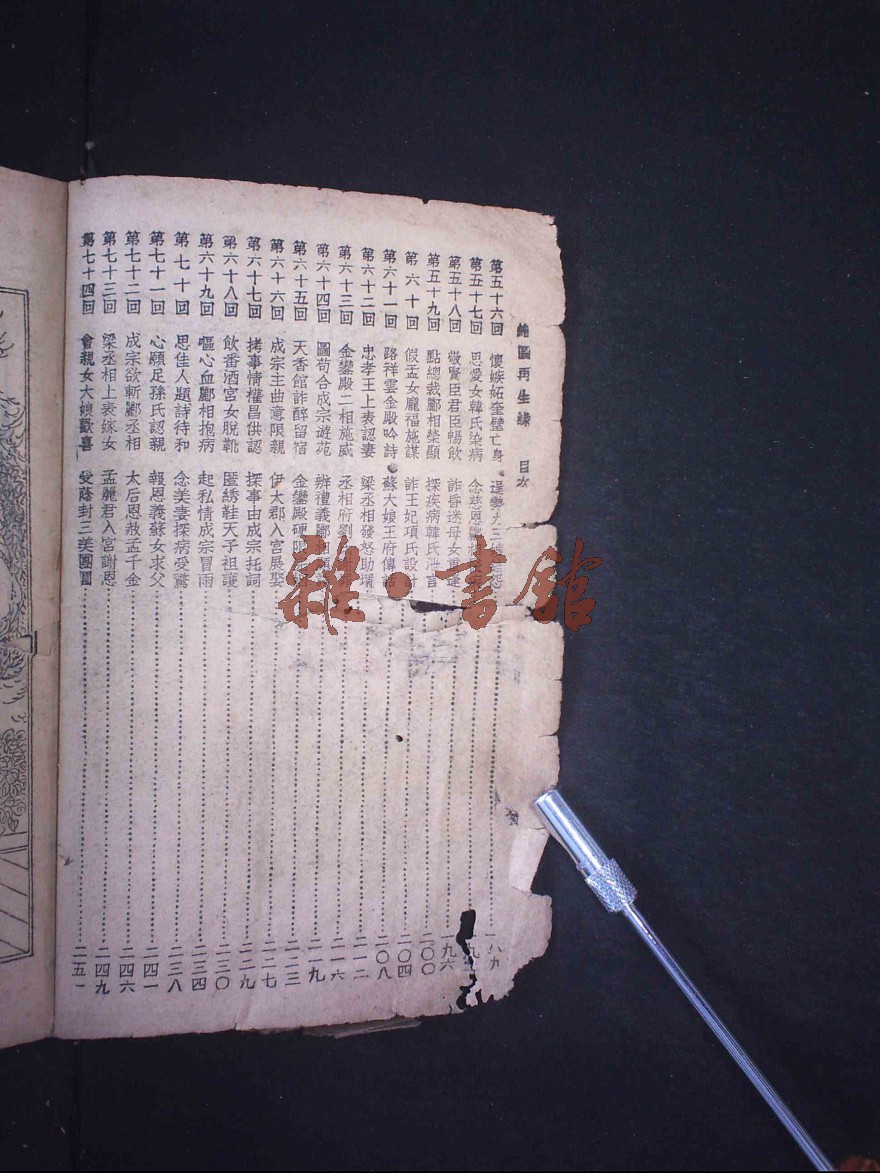 繪圖再生緣 目次
第五十六回 懷嫉妬奎璧亡身 逞 九三
第五十七回 思愛女韓氏染病 念慈恩酈
第五十八回 敬賢臣君臣暢飲 詐昏迷母女重逢 一九六
第五十九回 點總裁酈相榮顯 探疾病韓氏泄言 二〇〇
第六十回 假孟女龐福施謀 詐王妃項氏設計 二〇四
第六十一回 路祥雲金殿吟詩 蘇大娘王府傳話 二〇八
第六十二回 忠孝王上表認妻 梁丞相發怒助壻 二一二
第六十三回 金鑾殿二相施威 丞相府劉 二一六
第六十四回 圖苟合成宗遊苑 辨禮義酈相 二一九
第六十五回 天香館詐醉留宿 金鑾殿硬限 二二三
第六十六回 成宗主曲意限親 伊大郡入宮展娶 二二七
第六十七回 拷事情權昌供認 探事由成宗托詞 二二九
第六十八回 飲番酒宮女脫靴 匿綉鞋天子祖護 二三〇
第六十九回 嘔心血酈相抱病 起私情成宗冒雨 二三四
第七十回 思佳人題詩待和 念美妻探病受驚 二三八
第七十一回 心願足孫氏認親 報恩義蘇女求父 二四一
第七十二回 成宗欲斬酈丞相 太后恩赦孟千金 二四六
第七十三回 梁丞相上表嫁女 孟麗君入宮謝恩 二四九
第七十四回 會親女大娘歡喜 受蔭封三美團圓 二五一
雜·書館